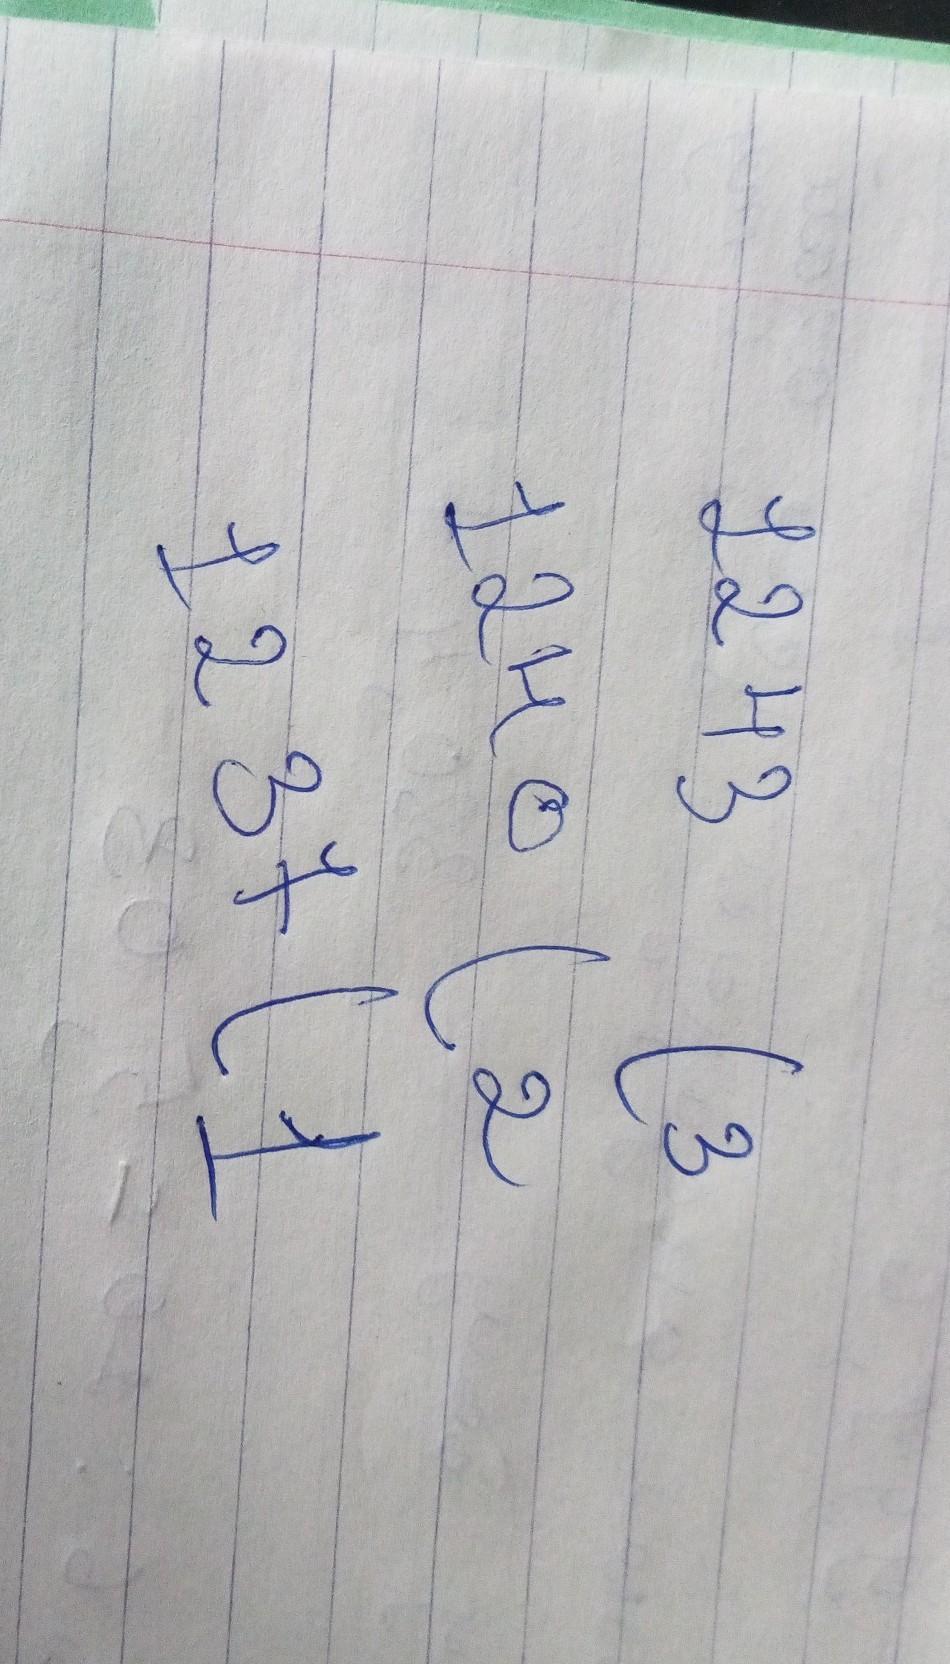 1243 (3
1240 (2
1237 (1